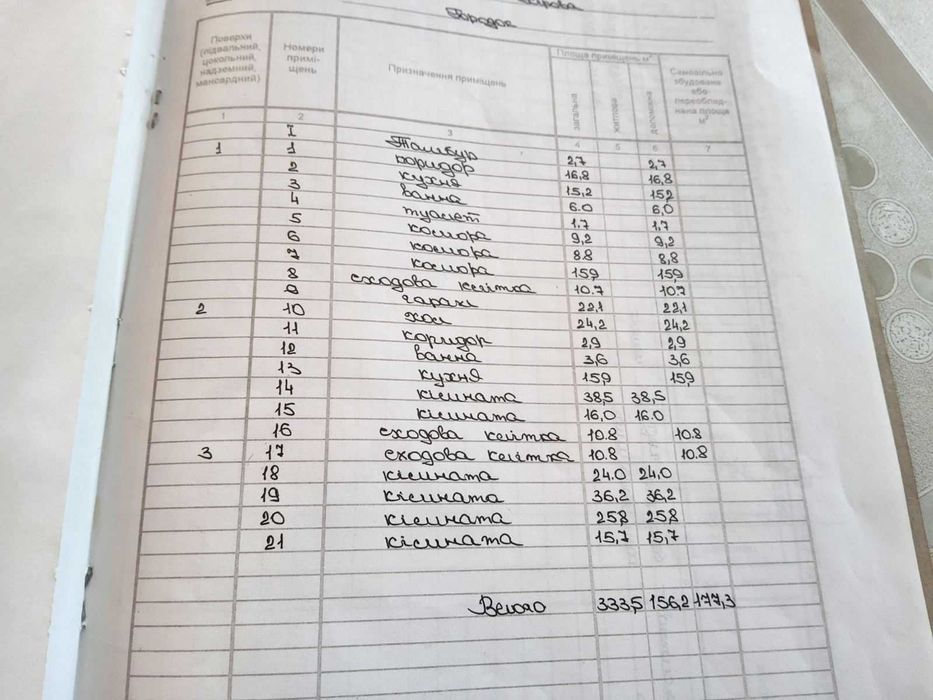 Городок
Поверхи (підвальний, цокольний, надземний, мансардний)
Номери примі- щень
Призначення приміщень
Площа приміщень м²
загальна
житлова
допоміжна
Самовільно збудована або переоблад- нана площа м²
1 2 3 4 5 6 7
I
1 1 Тамбур 2,7 2,7
2 коридор 16,8 16,8
3 кухня 15,2 15,2
4 ванна 6.0 6,0
5 туалет 1.7 1,7
6 комора 9,2 9,2
7 комора 8.8 8,8
8 комора 15,9 15,9
9 сходова клітка 10.7 10.7
2 10 гараж 22,1 22,1
11 хол 24,2 24,2
12 коридор 2,9 2,9
13 ванна 3,6 3,6
14 кухня 15,9 15,9
15 кімната 38,5 38,5
16 кімната 16,0 16.0
3 17 сходова клітка 10.8 10.8
18 сходова клітка 10.8 10.8
19 кімната 24.0 24,0
20 кімната 36,2 36,2
21 кімната 25,8 25,8
кімната 15,7 15,7
Всього 333,5 156,2 177,3